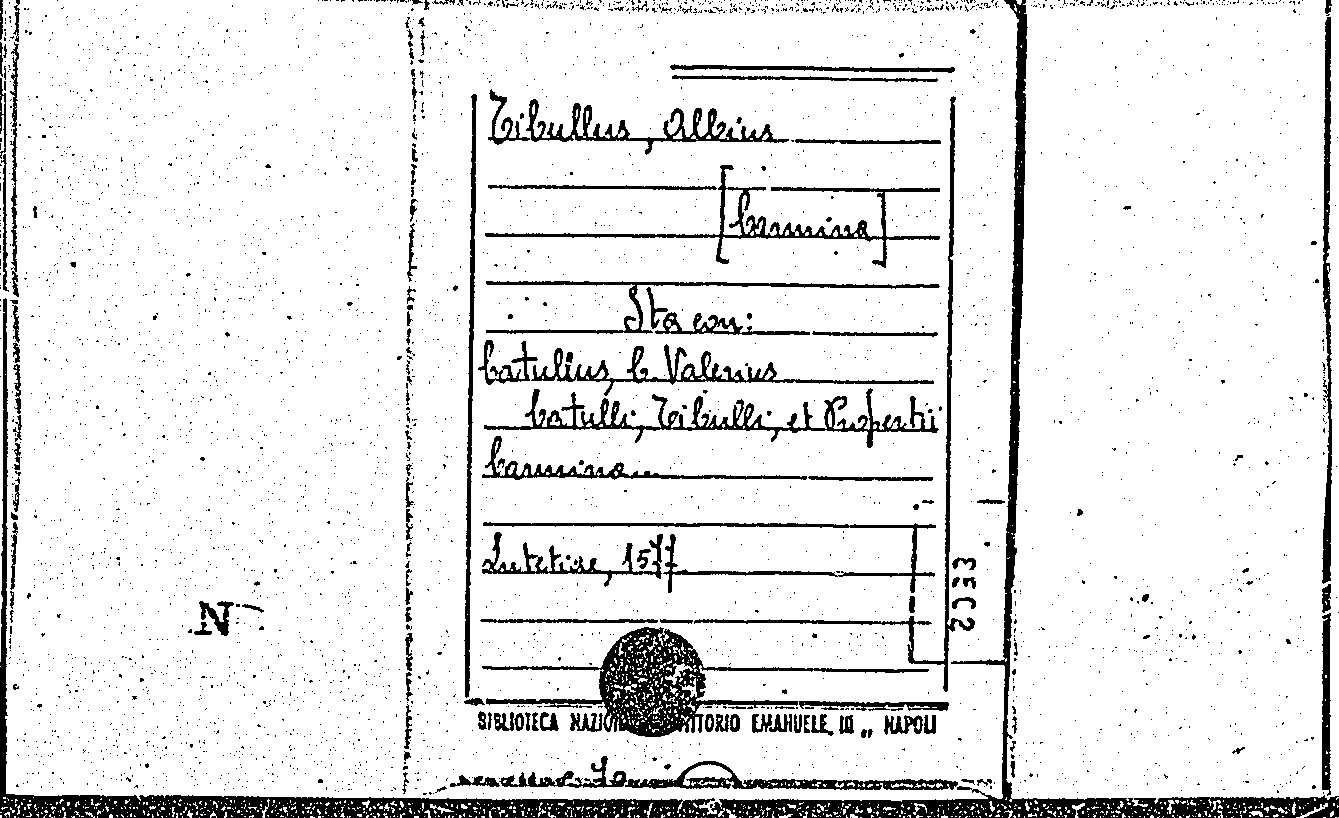 Tibullus, Albius
[Carmina]
Sta con:
Catulius, C. Valerius
Catulli, Tibulli, et Propertii
Carmina...
Lutetiae, 1577
2033
N
BIBLIOTECA NAZIO VITTORIO EMANUELE, III „ NAPOLI